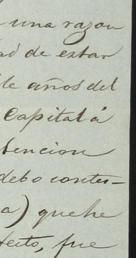 una razon
ad de estar
de años del
Capital á
tencion
debo contes-
a) que he
ecto, fue